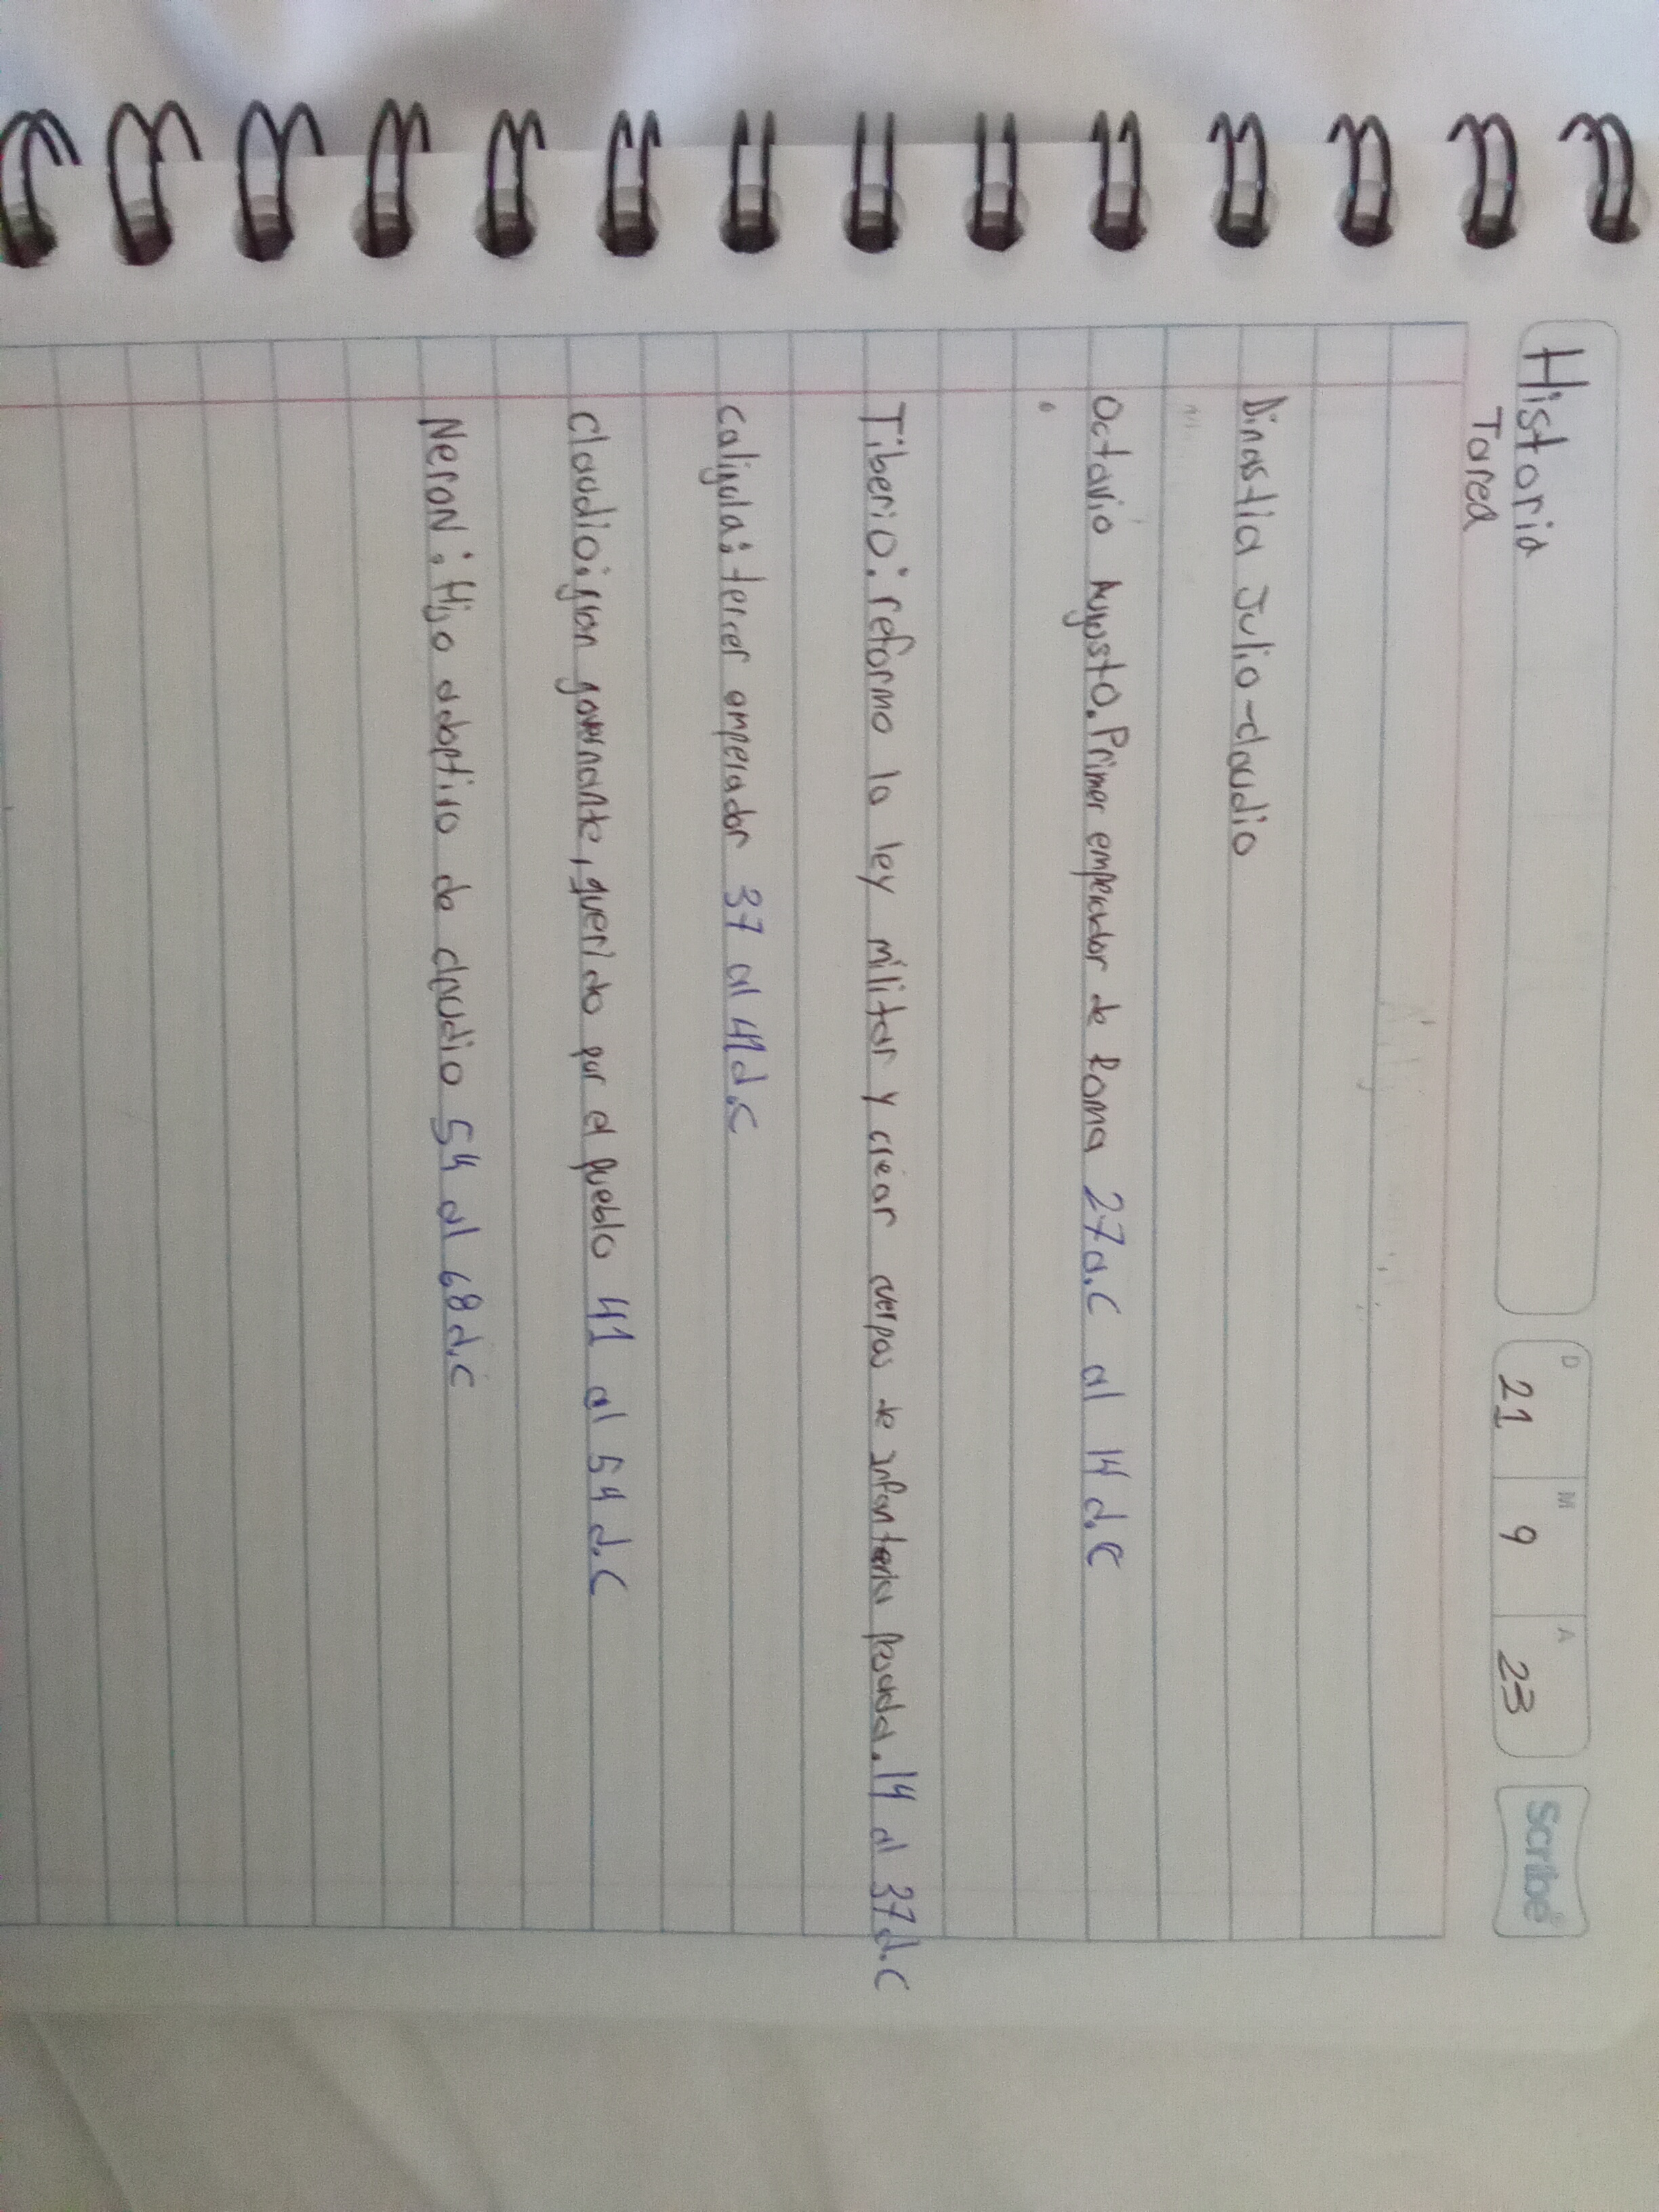 Historia
D 21 M 9 A 23
Scribe
Tarea
Dinastia Julio-claudio
Octavio Augosto. Primer emperador de Roma 27a.C al 14 d.C
Tiberio: reformo la ley militar y crear cuerpos de infanteria pesada. 14 al 37d.C
Caligula: tercer emperador 37 al 41d.C
Claudio: gran governante, querido por el pueblo 41 al 54 d.C
Neron: Hijo adoptivo de claudio 54 al 68d.C